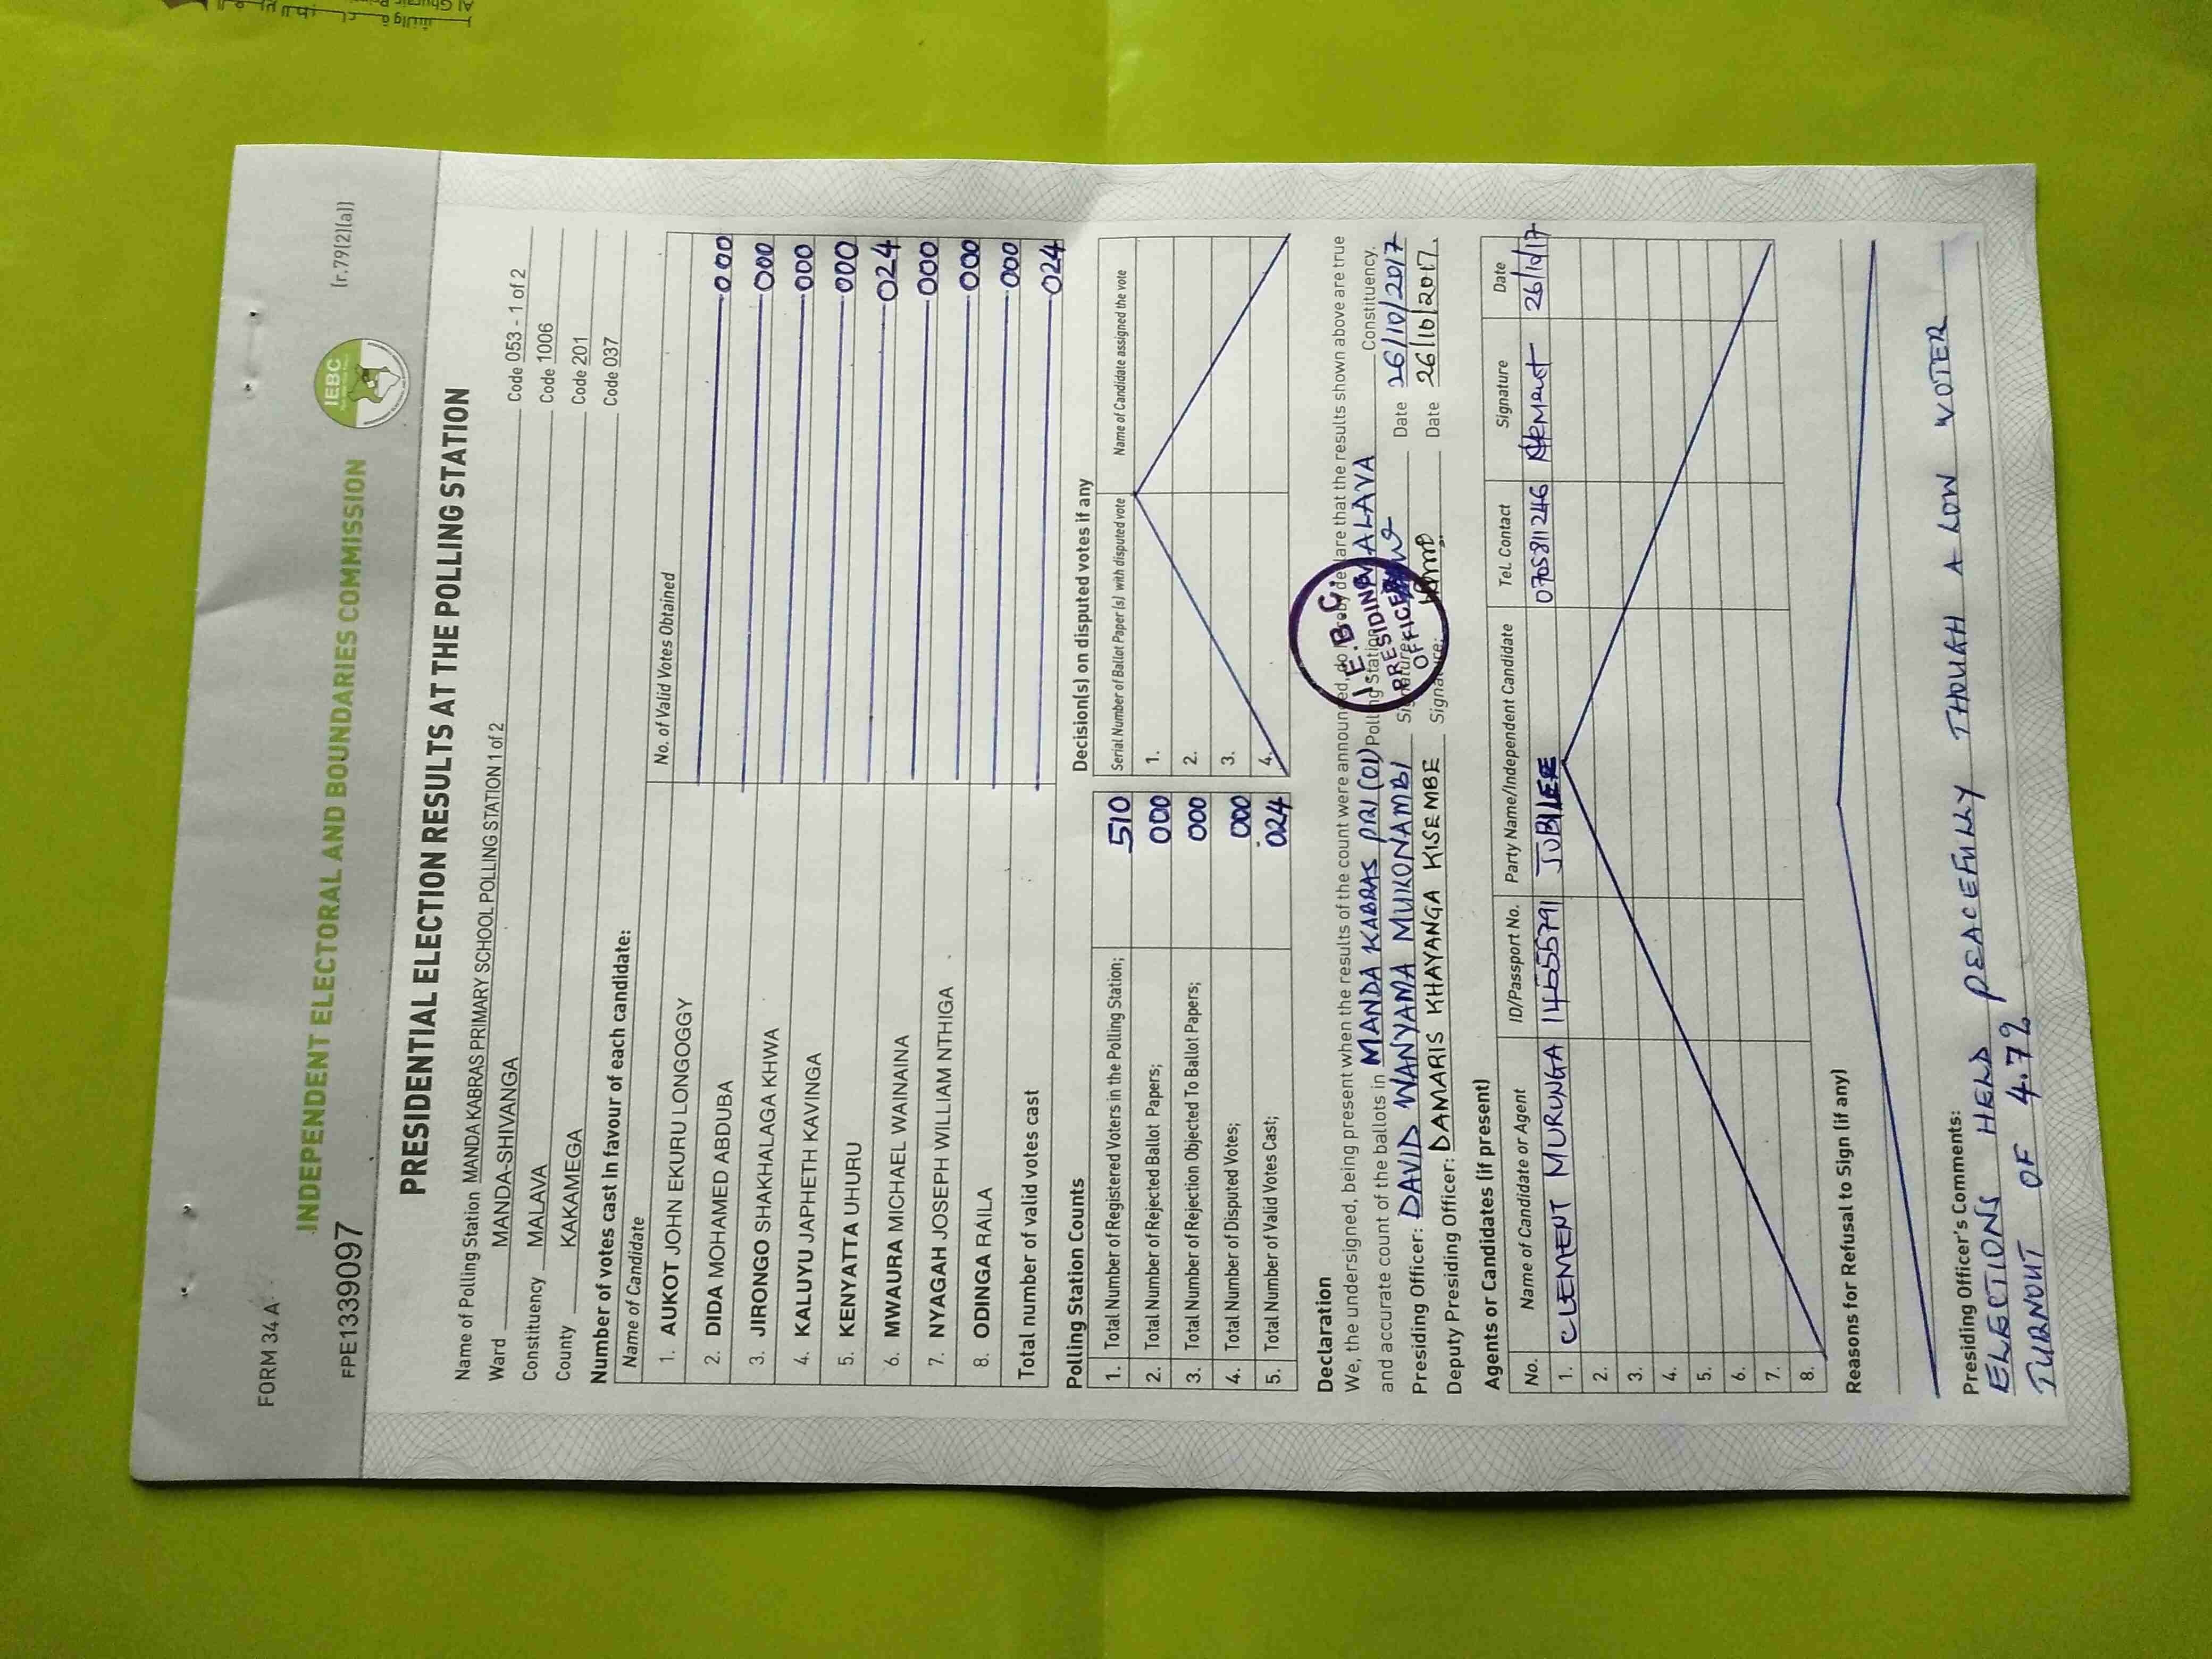 FORM 34 A
[r.79(2)(a)]
INDEPENDENT ELECTORAL AND BOUNDARIES COMMISSION
IEBC
FPE1339097
PRESIDENTIAL ELECTION RESULTS AT THE POLLING STATION
Name of Polling Station MANDA KABRAS PRIMARY SCHOOL POLLING STATION 1 of 2 Code 053 - 1 of 2
Ward MANDA-SHIVANGA Code 1006
Constituency MALAVA Code 201
County KAKAMEGA Code 037
Number of votes cast in favour of each candidate:
Name of Candidate No. of Valid Votes Obtained
1. AUKOT JOHN EKURU LONGOGGY 000
2. DIDA MOHAMED ABDUBA 000
3. JIRONGO SHAKHALAGA KHWA 000
4. KALUYU JAPHETH KAVINGA 000
5. KENYATTA UHURU 024
6. MWAURA MICHAEL WAINAINA 000
7. NYAGAH JOSEPH WILLIAM NTHIGA 000
8. ODINGA RAILA 000
Total number of valid votes cast 024
Polling Station Counts
1. Total Number of Registered Voters in the Polling Station; 510
2. Total Number of Rejected Ballot Papers; 000
3. Total Number of Rejection Objected To Ballot Papers; 000
4. Total Number of Disputed Votes; 000
5. Total Number of Valid Votes Cast; 024
Decision(s) on disputed votes if any
Serial Number of Ballot Paper(s) with disputed vote Name of Candidate assigned the vote
1.
2.
3.
4.
Declaration
We, the undersigned, being present when the results of the count were announced, do hereby declare that the results shown above are true
and accurate count of the ballots in MANDA KABRAS PRI (01) Polling Station MALAVA Constituency.
Presiding Officer: DAVID WANYAMA MUKONAMBI Signature: Date 26/10/2017
Deputy Presiding Officer: DAMARIS KHAYANGA KISEMBE Signature: Date 26/10/2017.
I.E.B.C.
PRESIDING
OFFICER
Agents or Candidates (if present)
No. Name of Candidate or Agent ID/Passport No. Party Name/Independent Candidate Tel. Contact Signature Date
1. CLEMENT MURUNGA 14655791 JUBILEE 0705811246 Clement 26/10/17
2.
3.
4.
5.
6.
7.
8.
Reasons for Refusal to Sign (if any)
Presiding Officer's Comments:
ELECTIONS HELD PEACEFULLY THOUGH A LOW VOTER
TURNOUT OF 4.7%